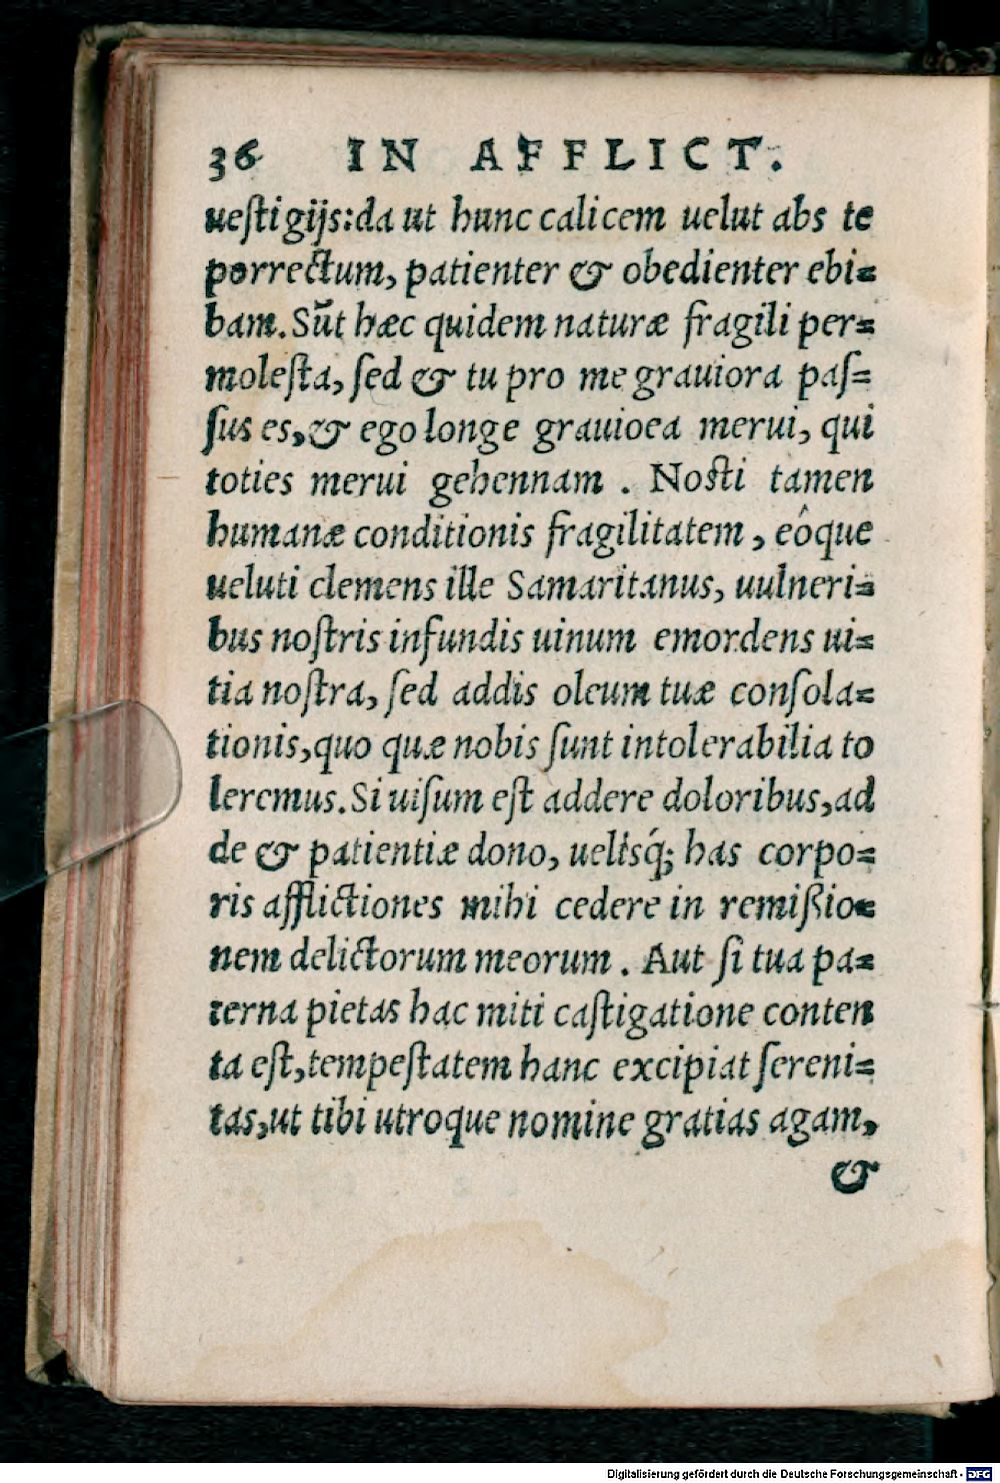 36 IN AFFLICT.
ueſtigijs:da ut hunc calicem uelut abs te
porrectum, patienter & obedienter ebi=
bam. Sũt hæc quidem naturæ fragili per=
moleſta, ſed & tu pro me grauiora paſ=
ſus es, & ego longe grauioea merui, qui
toties merui gehennam . Noſti tamen
humanæ conditionis fragilitatem, eôque
ueluti clemens ille Samaritanus, uulneri=
bus noſtris infundis uinum emordens ui=
tia noſtra, ſed addis oleum tuæ conſola=
tionis, quo quæ nobis ſunt intolerabilia to
leremus. Si uiſum eſt addere doloribus, ad
de & patientiæ dono, uelisq́; has corpo=
ris afflictiones mihi cedere in remißio=
nem delictorum meorum . Aut ſi tua pa=
terna pietas hac miti caſtigatione conten
ta eſt, tempeſtatem hanc excipiat ſereni=
tas, ut tibi utroque nomine gratias agam,
&
Digitalisierung gefördert durch die Deutsche Forschungsgemeinschaft - DFG